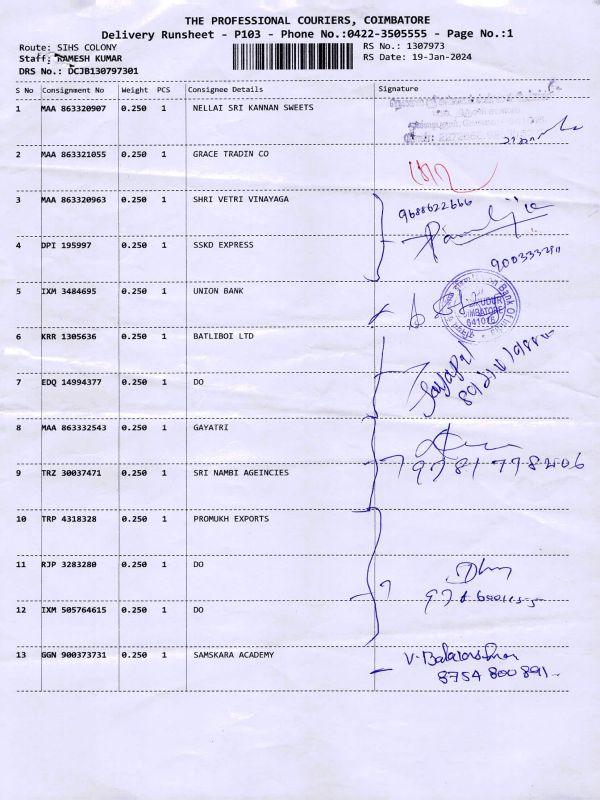 THE PROFESSIONAL COURIERS, COIMBATORE
Delivery Runsheet - P103 - Phone No.:0422-3505555 - Page No.:1
Route: SIHS COLONY
RS No.: 1307973
Staff: RAMESH KUMAR
RS Date: 19-Jan-2024
DRS No.: DCJB130797301
S No Consignment No Weight PCS Consignee Details Signature
1 MAA 863320907 0.250 1 NELLAI SRI KANNAN SWEETS
2 MAA 863321055 0.250 1 GRACE TRADIN CO
3 MAA 863320963 0.250 1 SHRI VETRI VINAYAGA
9688622666
4 DPI 195997 0.250 1 SSKD EXPRESS
5 IXM 3484695 0.250 1 UNION BANK
COIMBATORE
6 KRR 1305636 0.250 1 BATLIBOI LTD
7 EDQ 14994377 0.250 1 DO
8 MAA 863332543 0.250 1 GAYATRI
9 TRZ 30037471 0.250 1 SRI NAMBI AGEINCIES
10 TRP 4318328 0.250 1 PROMUKH EXPORTS
11 RJP 3283280 0.250 1 DO
12 IXM 505764615 0.250 1 DO
13 GGN 900373731 0.250 1 SAMSKARA ACADEMY
8754 800 891